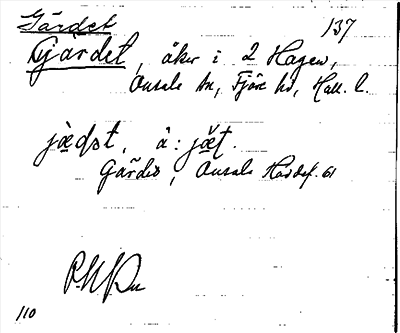 Gärdet 137
Gjärdet, åker i 2 Hagen,
Onsala sn, Fjäre hd, Hall. l.
jædət, ä: jæt.
Gärdis, Onsala Hdskf. 61
110